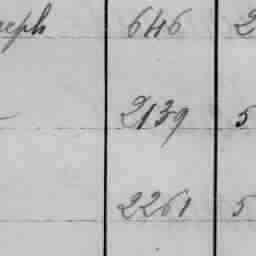 seph 646 2
2139 5
2261 5